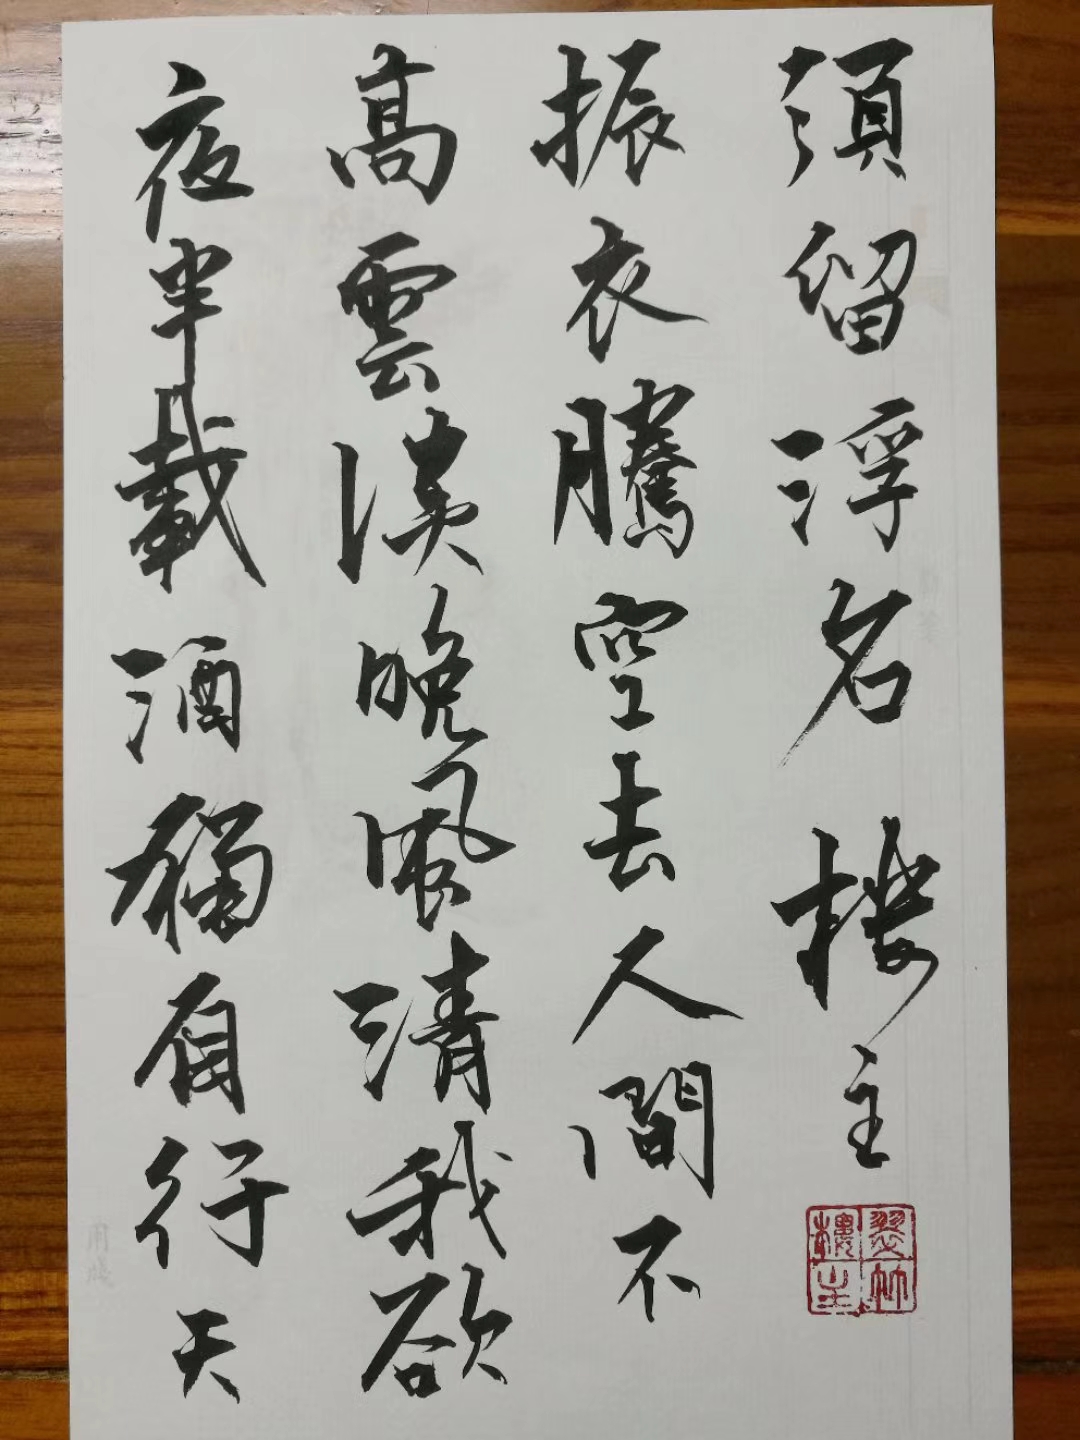 夜半載酒獨自行天
高雲淡晚風清我欲
振衣騰空去人間不
須留浮名 樓主
翠竹樓主